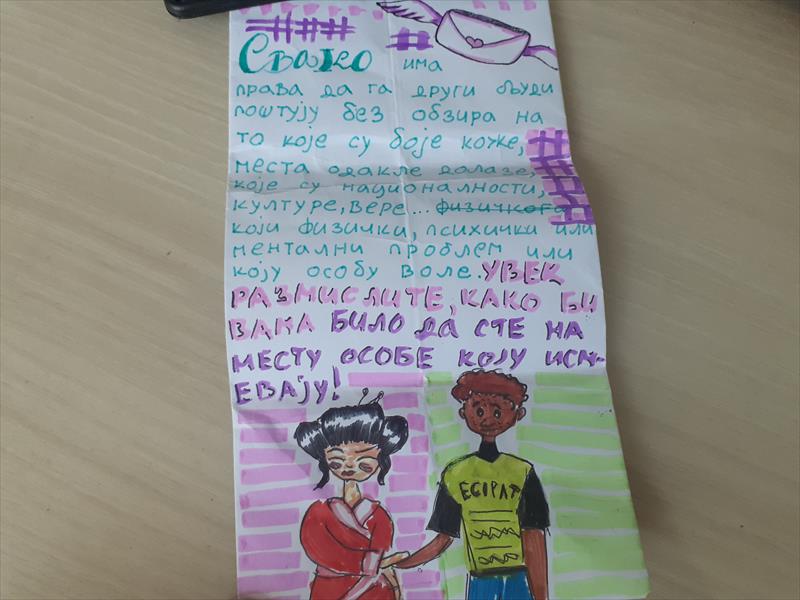 Свако има
права да га други људи
поштују без обзира на
то које су боје коже,
места одакле долазе,
које су националности,
културе, вере... физичкога
који физички, психички или
ментални проблем или
коју особу воле. УВЕК
РАЗМИСЛИТЕ, КАКО БИ
ВАМА БИЛО ДА СТЕ НА
МЕСТУ ОСОБЕ КОЈУ ИСМ-
ЕВАЈУ!
EGIPAT